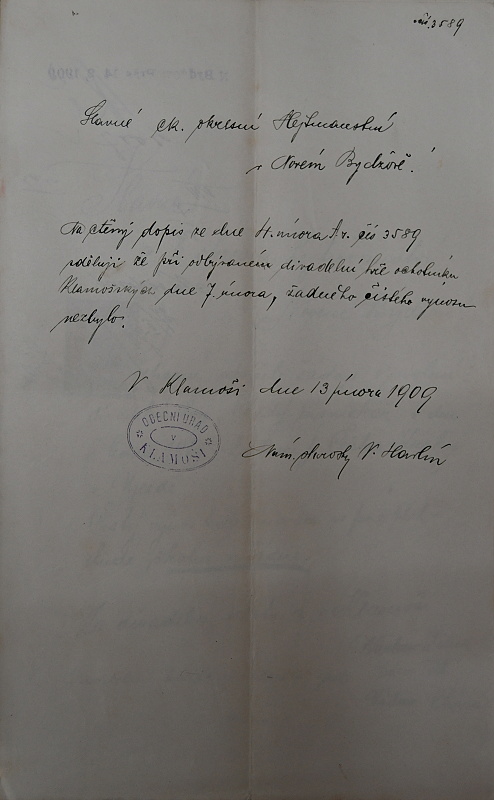 čís. 3589
Slavné ck. okresní Hejtmanství
v Novém Bydžově!
Na ctěný dopis ze dne 4. února t.r. čís 3589
sděluji že při odbývaném divadelní hře ochotníků
Klamošských dne 7. února, žadného čistého výnosu
nezbylo.
V Klamoši dne 13 února 1909
OBECNÍ ÚŘAD
v
KLAMOŠI
Nám. starosty V. Havlín